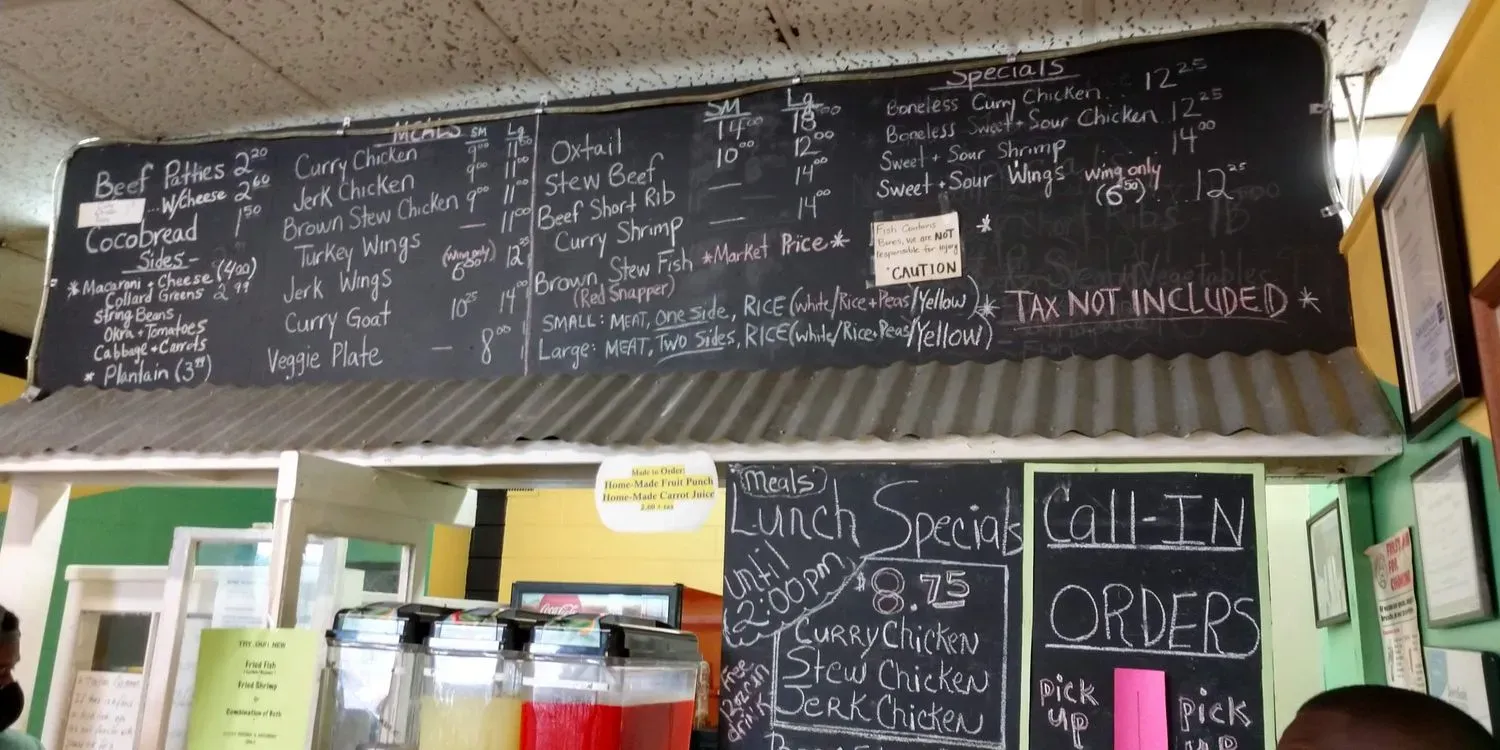 Beef Patties 2.20
...w/Cheese 2.60
Cocobread 1.50
Sides-
*Macaroni + Cheese (4.00)
Collard Greens 2.99
String Beans
Okra + Tomatoes
Cabbage + Carrots
* Plantain (3.99)
MEALS SM Lg
Curry Chicken 9.00
Jerk Chicken 9.00 11.00
Brown Stew Chicken 9.00 11.00
Turkey Wings — 11.00
Jerk Wings (wing only) 6.50 12.25
Curry Goat 10.25 14.00
Veggie Plate — 8.00
SM Lg
Oxtail 14.00 18.00
Stew Beef 10.00 12.00
Beef Short Rib — 14.00
Curry Shrimp — 14.00
Brown Stew Fish *Market Price*
(Red Snapper)
SMALL: MEAT, One Side, RICE (white/Rice+Peas/Yellow)
Large: MEAT, Two Sides, RICE (white/Rice+Peas/Yellow)
Specials
Boneless Curry Chicken 12.25
Boneless Sweet + Sour Chicken 12.25
Sweet + Sour Shrimp 14.00
Sweet + Sour Wings wing only (6.50) 12.25
Fish Contains
Bones, we are NOT
responsible for injury
*CAUTION
*
* TAX NOT INCLUDED *
Made to Order:
Home-Made Fruit Punch
Home-Made Carrot Juice
2.00 + tax
Meals
Lunch Specials
until
2:00pm
$8.75
Curry Chicken
Stew Chicken
Jerk Chicken
drink
Call-IN
ORDERS
pick
up
pick
up
TRY OUR NEW
Fried Fish
Fried Shrimp
or
Combination of Both
Coca-Cola
FIRST AID
FOR
CHOKING